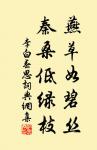 燕草如碧丝
秦桑低绿枝
李白春思詞典網集